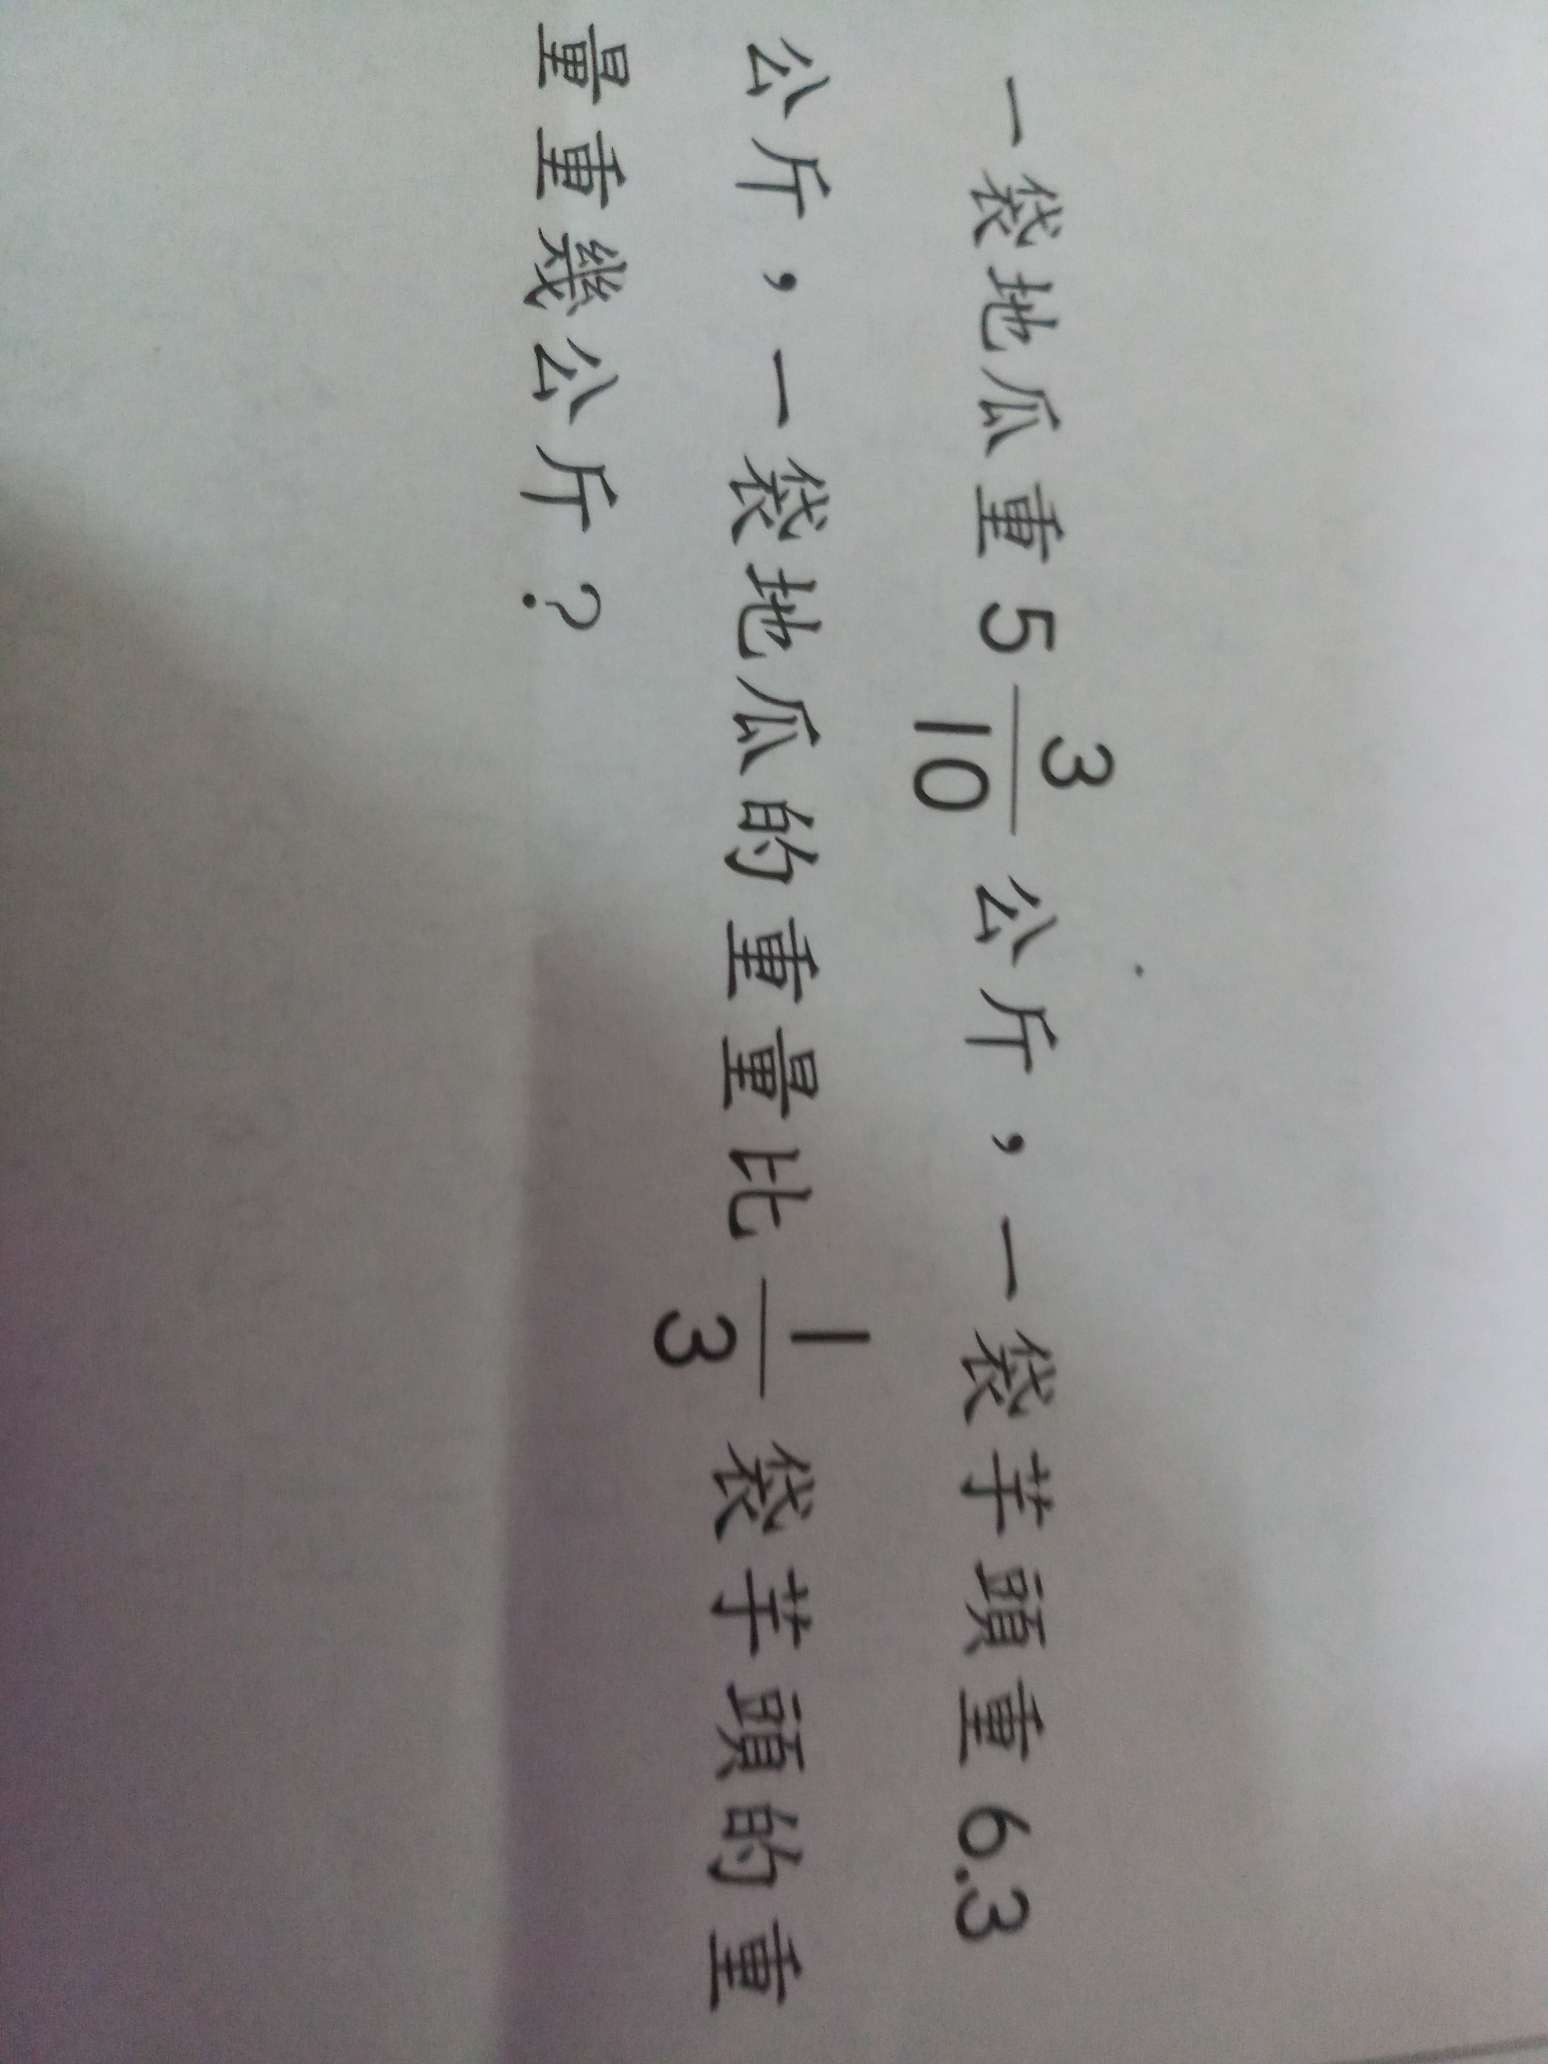 一袋地瓜重 5 3/10 公斤，一袋芋頭重 6.3
公斤，一袋地瓜的重量比 1/3 袋芋頭的重
量重幾公斤？